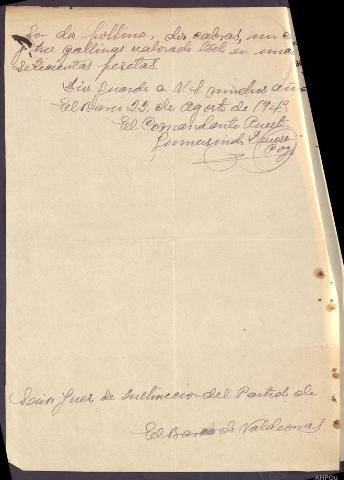 do dos pollino, dos cabras, un c
y tre gallinas valorado todo en una
setecientas pesetas.
Dios guarde a V.S. muchos años
El Barco 22 de Agosto de 1943
El Comandante Puest
Gumersindo
Señor Juez de Instruccion del Partido de
El Barco de Valdeorras
AHPOu